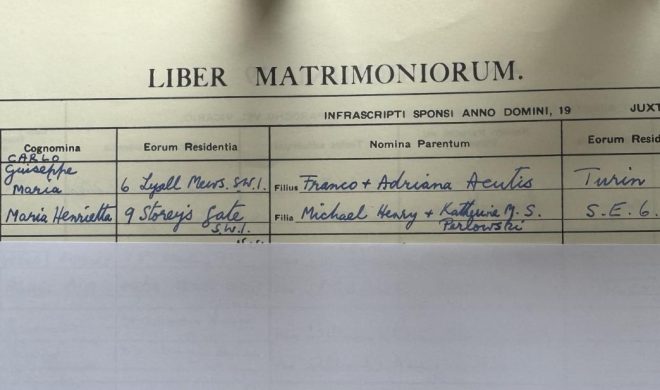 LIBER MATRIMONIORUM.
INFRASCRIPTI SPONSI ANNO DOMINI, 19 JUXT
Cognomina Eorum Residentia Nomina Parentum Eorum Resid
CARLO
Giuseppe
Maria 6 Lyall Mews. S.W.1. Filius Franco + Adriana Acutis Turin
Maria Henrietta 9 Storey's Gate Filia Michael Henry + Katherine M. S. S.E.6.
S.W.1. Perlowski